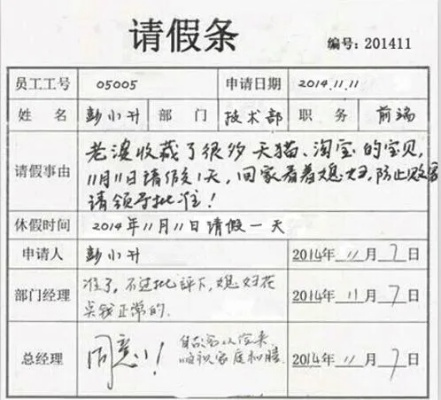 请假条
编号: 201411
员工工号 05005 申请日期 2014.11.11
姓 名 彭小升 部 门 技术部 职 务 前端
请假事由
老婆收藏了很多天猫、淘宝的宝贝,
11月11日请假1天, 回家看着媳妇, 防止败家
请领导批准!
休假时间 2014年11月11日请假一天
申请人 彭小升 2014年11月7日
部门经理
准了, 不过批评下, 媳妇花
点钱正常的. 2014年11月7日
总经理
同意!
家庭和睦 2014年11月7日